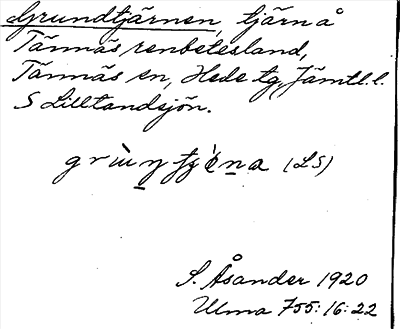 Grundtjärnen, tjärn å
Tännäs renbetesland,
Tännäs sn, Hede tg, Jämtl. l.
S Lilltandsjön.
(LS)
S. Åsander 1920
Ulma 755:16:22